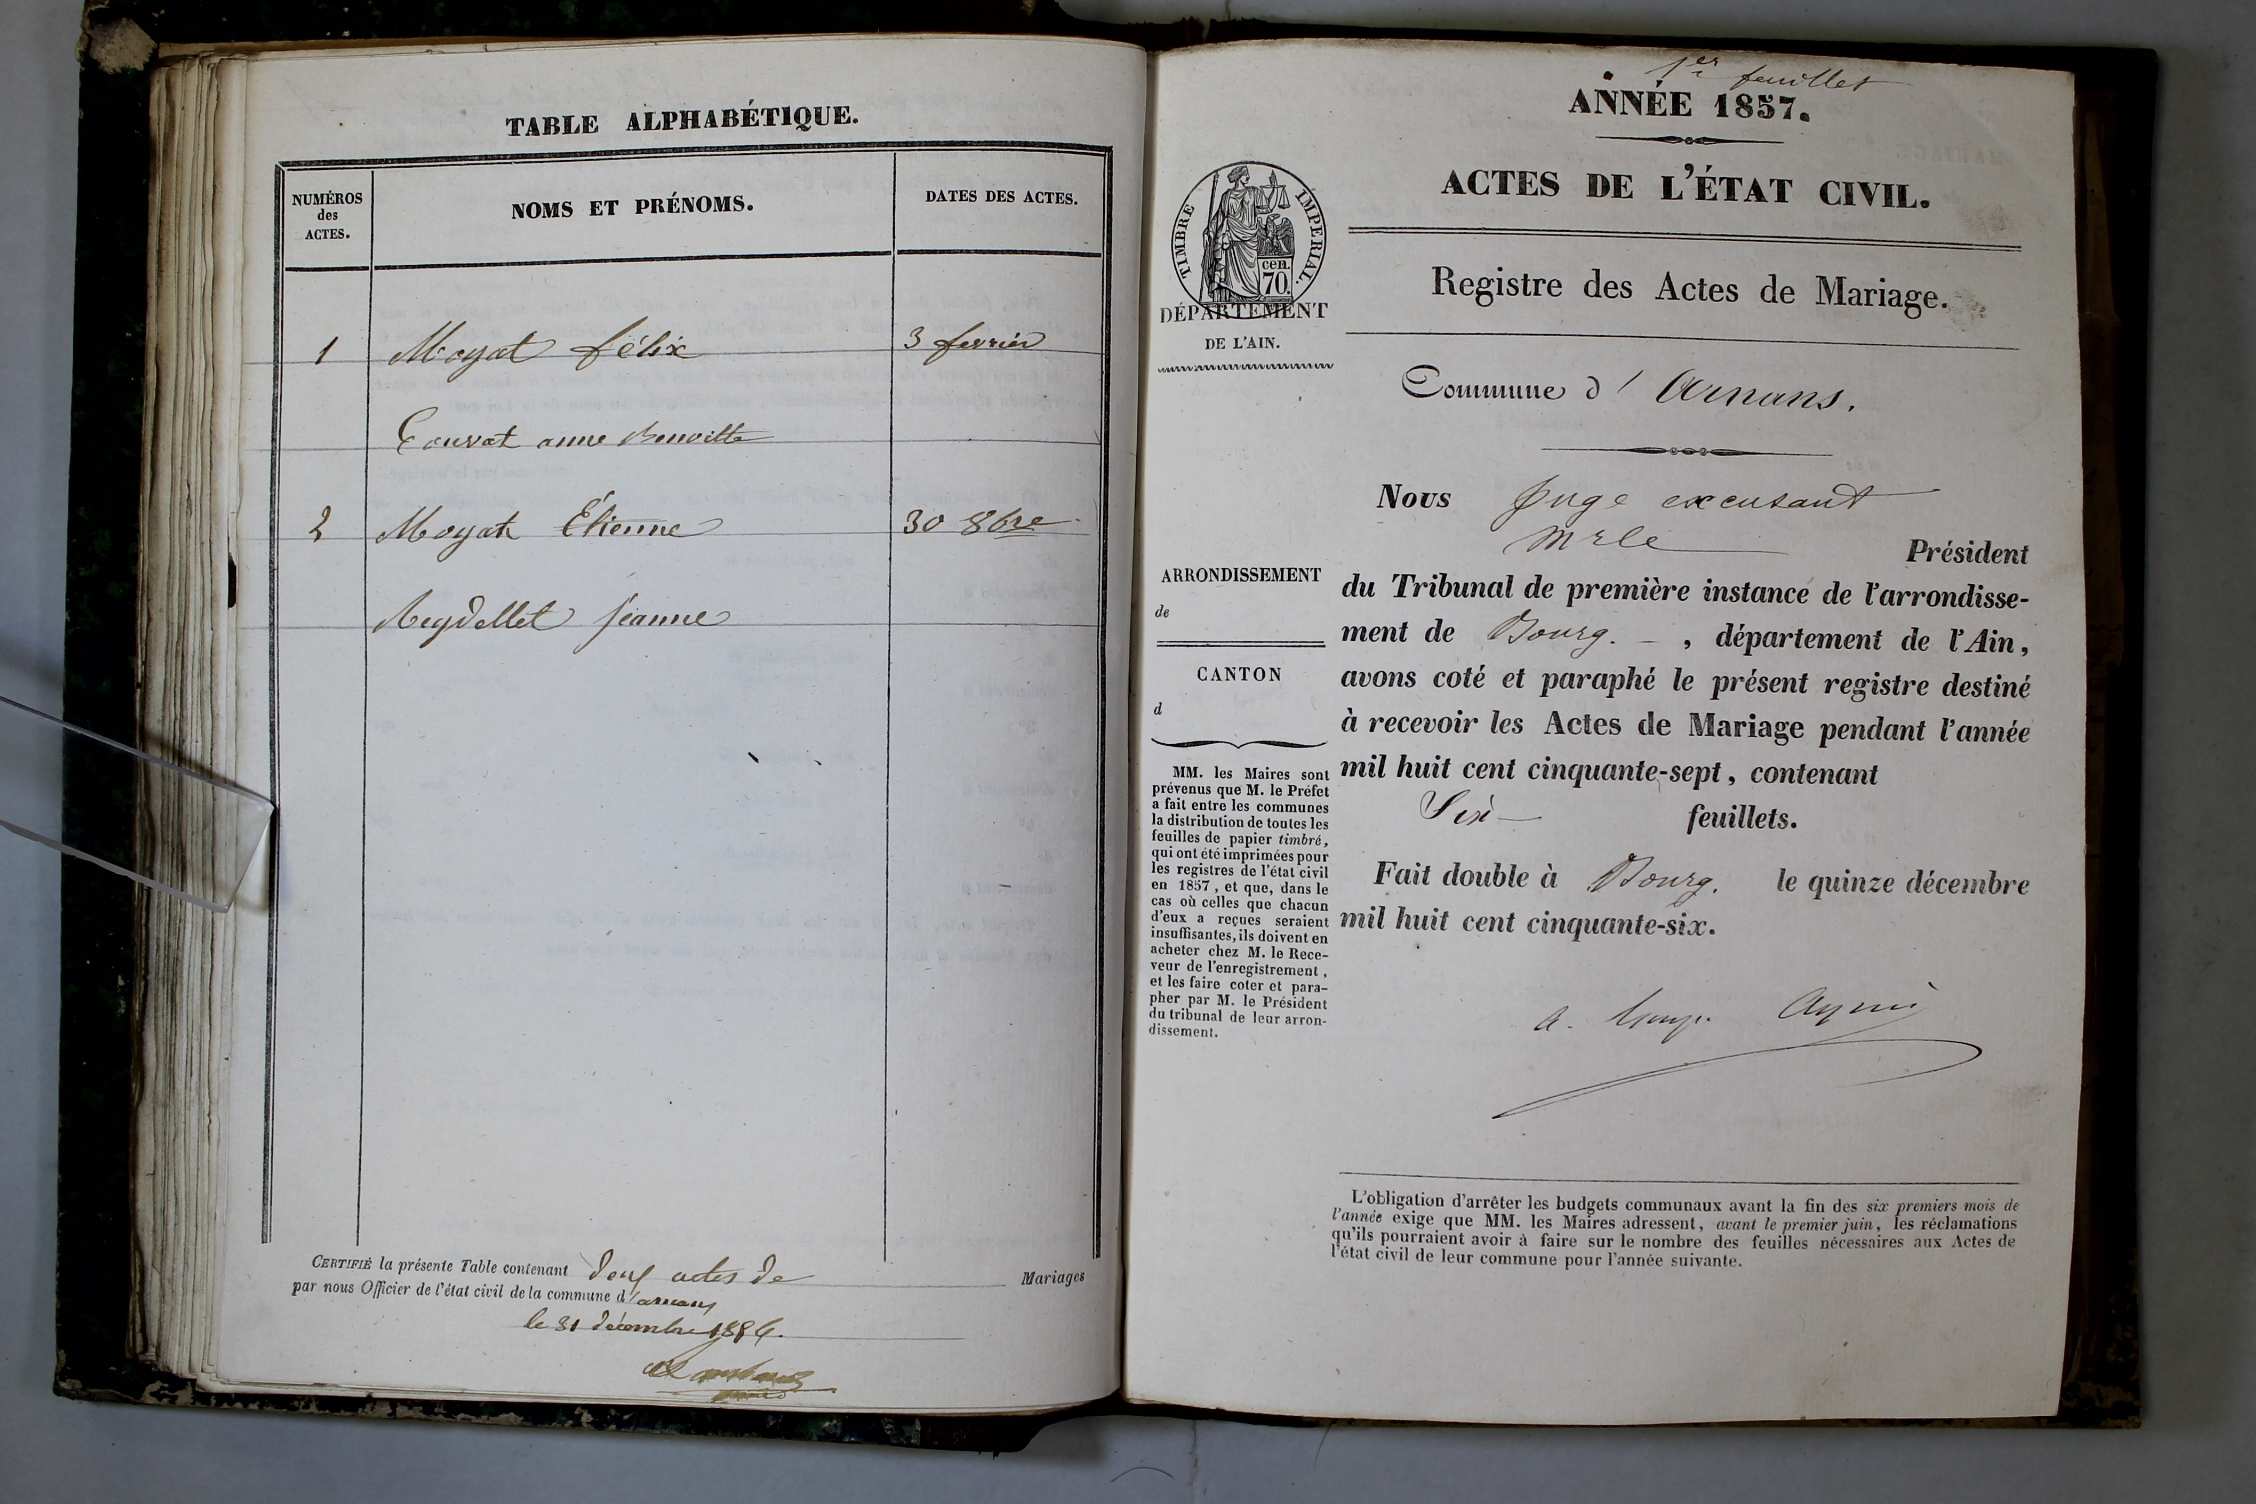 TABLE ALPHABÉTIQUE.
NUMÉROS
des
ACTES.
NOMS ET PRÉNOMS.
DATES DES ACTES.
1 Moyat félix 3 fevrier
Convat anne Benoitte
2 Moyat Étienne 30 8bre
Reydellet jeanne
CERTIFIÉ la présente Table contenant deux actes de Mariages
par nous Officier de l'état civil de la commune d'arnans
le 31 décembre
1er feuillet
ANNÉE 1857.
ACTES DE L'ÉTAT CIVIL.
TIMBRE IMPERIAL.
cen.
70.
DÉPARTEMENT
DE L'AIN.
Registre des Actes de Mariage.
Commune d'Arnans.
ARRONDISSEMENT
de
CANTON
d
MM. les Maires sont
prévenus que M. le Préfet
a fait entre les communes
la distribution de toutes les
feuilles de papier timbré,
qui ont été imprimées pour
les registres de l'état civil
en 1857, et que, dans le
cas où celles que chacun
d'eux a reçues seraient
insuffisantes, ils doivent en
acheter chez M. le Rece-
veur de l'enregistrement,
et les faire coter et para-
pher par M. le Président
du tribunal de leur arron-
dissement.
Nous Juge excusant
Mr le Président
du Tribunal de première instance de l'arrondisse-
ment de Bourg. , département de l'Ain,
avons coté et paraphé le présent registre destiné
à recevoir les Actes de Mariage pendant l'année
mil huit cent cinquante-sept, contenant
Six feuillets.
Fait double à Bourg. le quinze décembre
mil huit cent cinquante-six.
L'obligation d'arrêter les budgets communaux avant la fin des six premiers mois de
l'année exige que MM. les Maires adressent, avant le premier juin, les réclamations
qu'ils pourraient avoir à faire sur le nombre des feuilles nécessaires aux Actes de
l'état civil de leur commune pour l'année suivante.